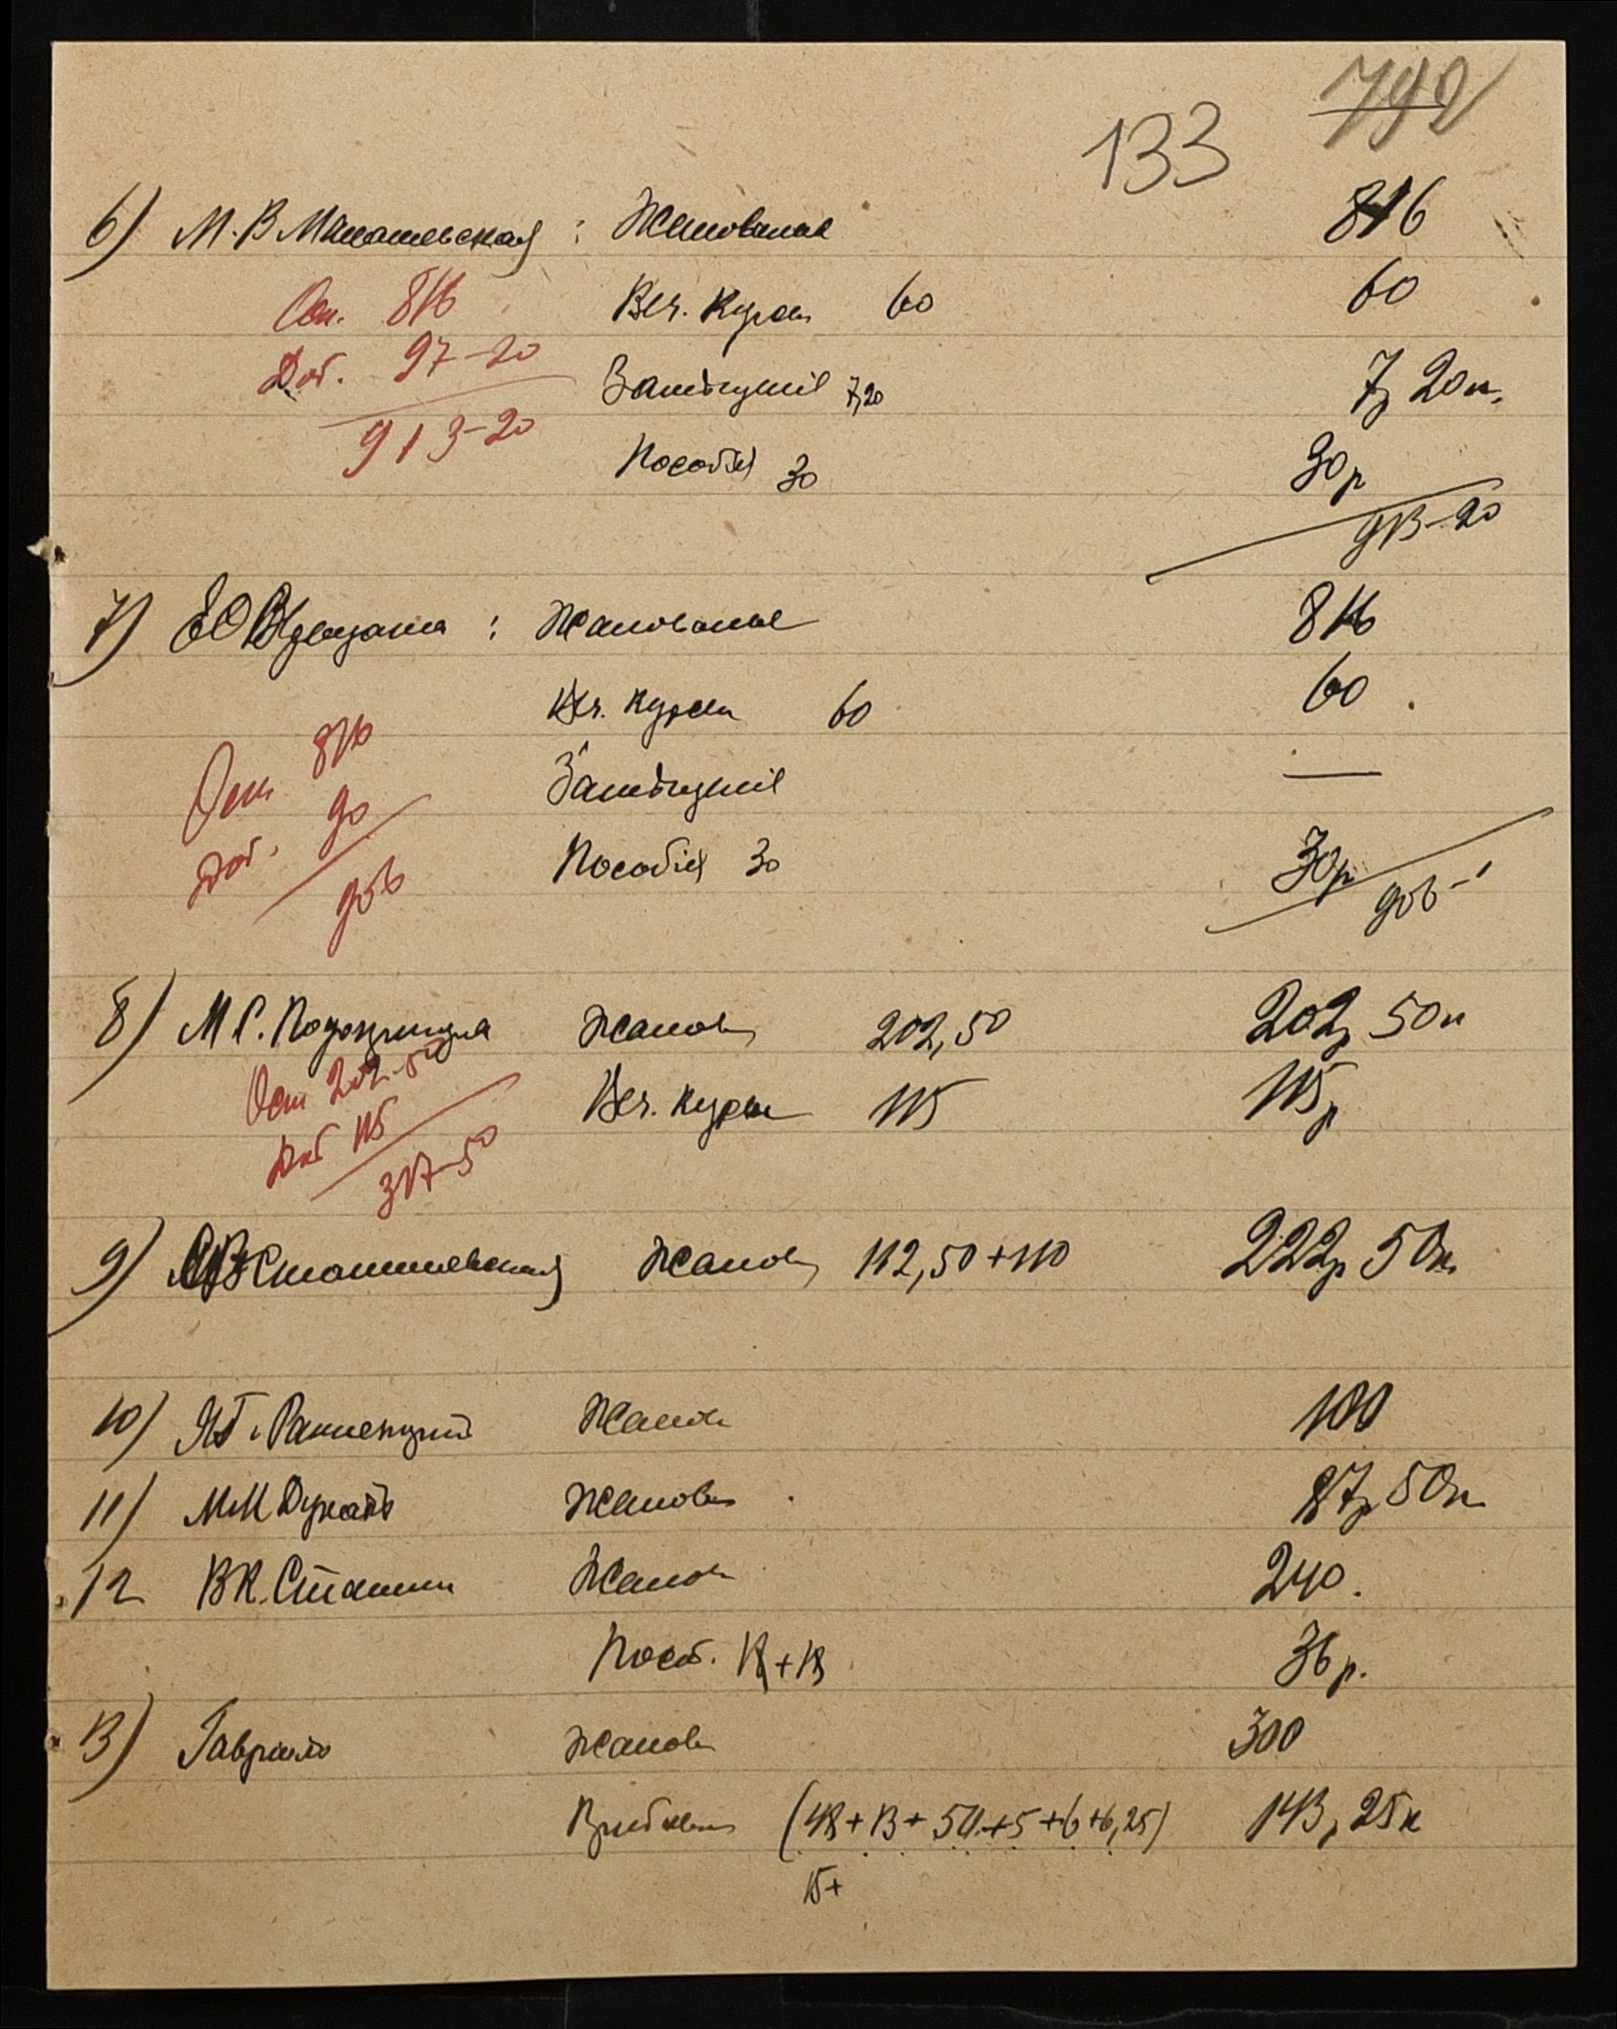 792
133
6) М.В. : Жалованье 816
Осн. 816 Веч. Курсы 60 60
Доб. 97-20 Замѣщенiе 7,20 7р 20к.
913-20 Пособiя 30 30р
913-20
7) : Жалованье 816
Веч. курсы 60 60
Осн 816 Замѣщенiе —
Доб. 90 Пособiя 30 30р
906 906-
8) М.С. Жалов 202,50 202р 50к
Осн 202-50 Веч. курсы 115 115р
Доб 115
317-50
9) Жалов 112,50+110 222р 50к
10) Жалов 100
11) М.М. Жалов 87р 50к
12 В.К. Жалов 240.
Пособ. 18+18 36р.
13) Гаврило Жалов 300
(48+13+50+5+6+6,25) 143р 25к
15+